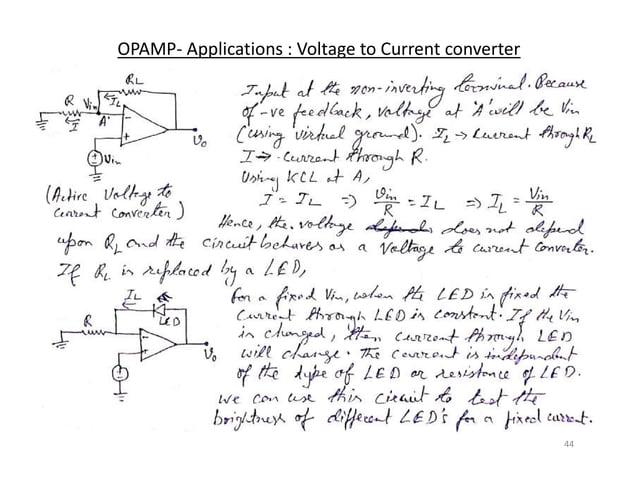 OPAMP- Applications : Voltage to Current converter
RL
R Vin IL
I A
Vin
Vo
(Active Voltage to
current converter)
Input at the non-inverting terminal. Because
of -ve feedback, voltage at 'A' will be Vin
(using virtual ground). IL → Current through RL
I → Current through R.
Using KCL at A,
I = IL ⇒ Vin/R = IL ⇒ IL = Vin/R
Hence, the voltage does not depend
upon RL and the circuit behaves as a Voltage to current converter.
If RL is replaced by a LED,
IL
LED
R
Vo
for a fixed Vin, when the LED is fixed the
current through LED is constant. If the Vin
is changed, then current through LED
will change. The current is independent
of the type of LED or resistance of LED.
We can use this circuit to test the
brightness of different LED's for a fixed current.
44